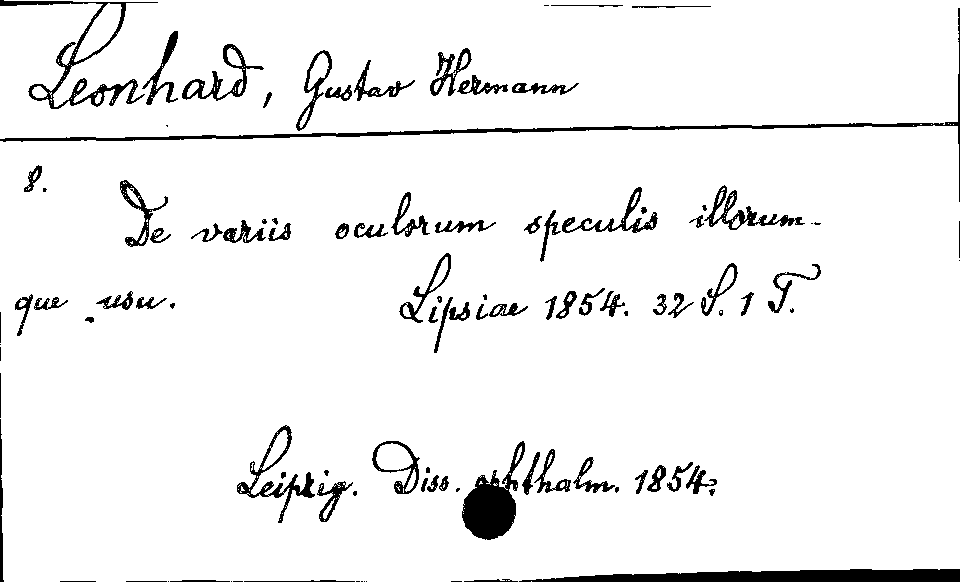 Leonhard, Gustav Hermann
8.
De variis oculorum speculis illorum-
que usu. Lipsiae 1854. 32 S. 1 T.
Leipzig. Diss. ophthalm. 1854.